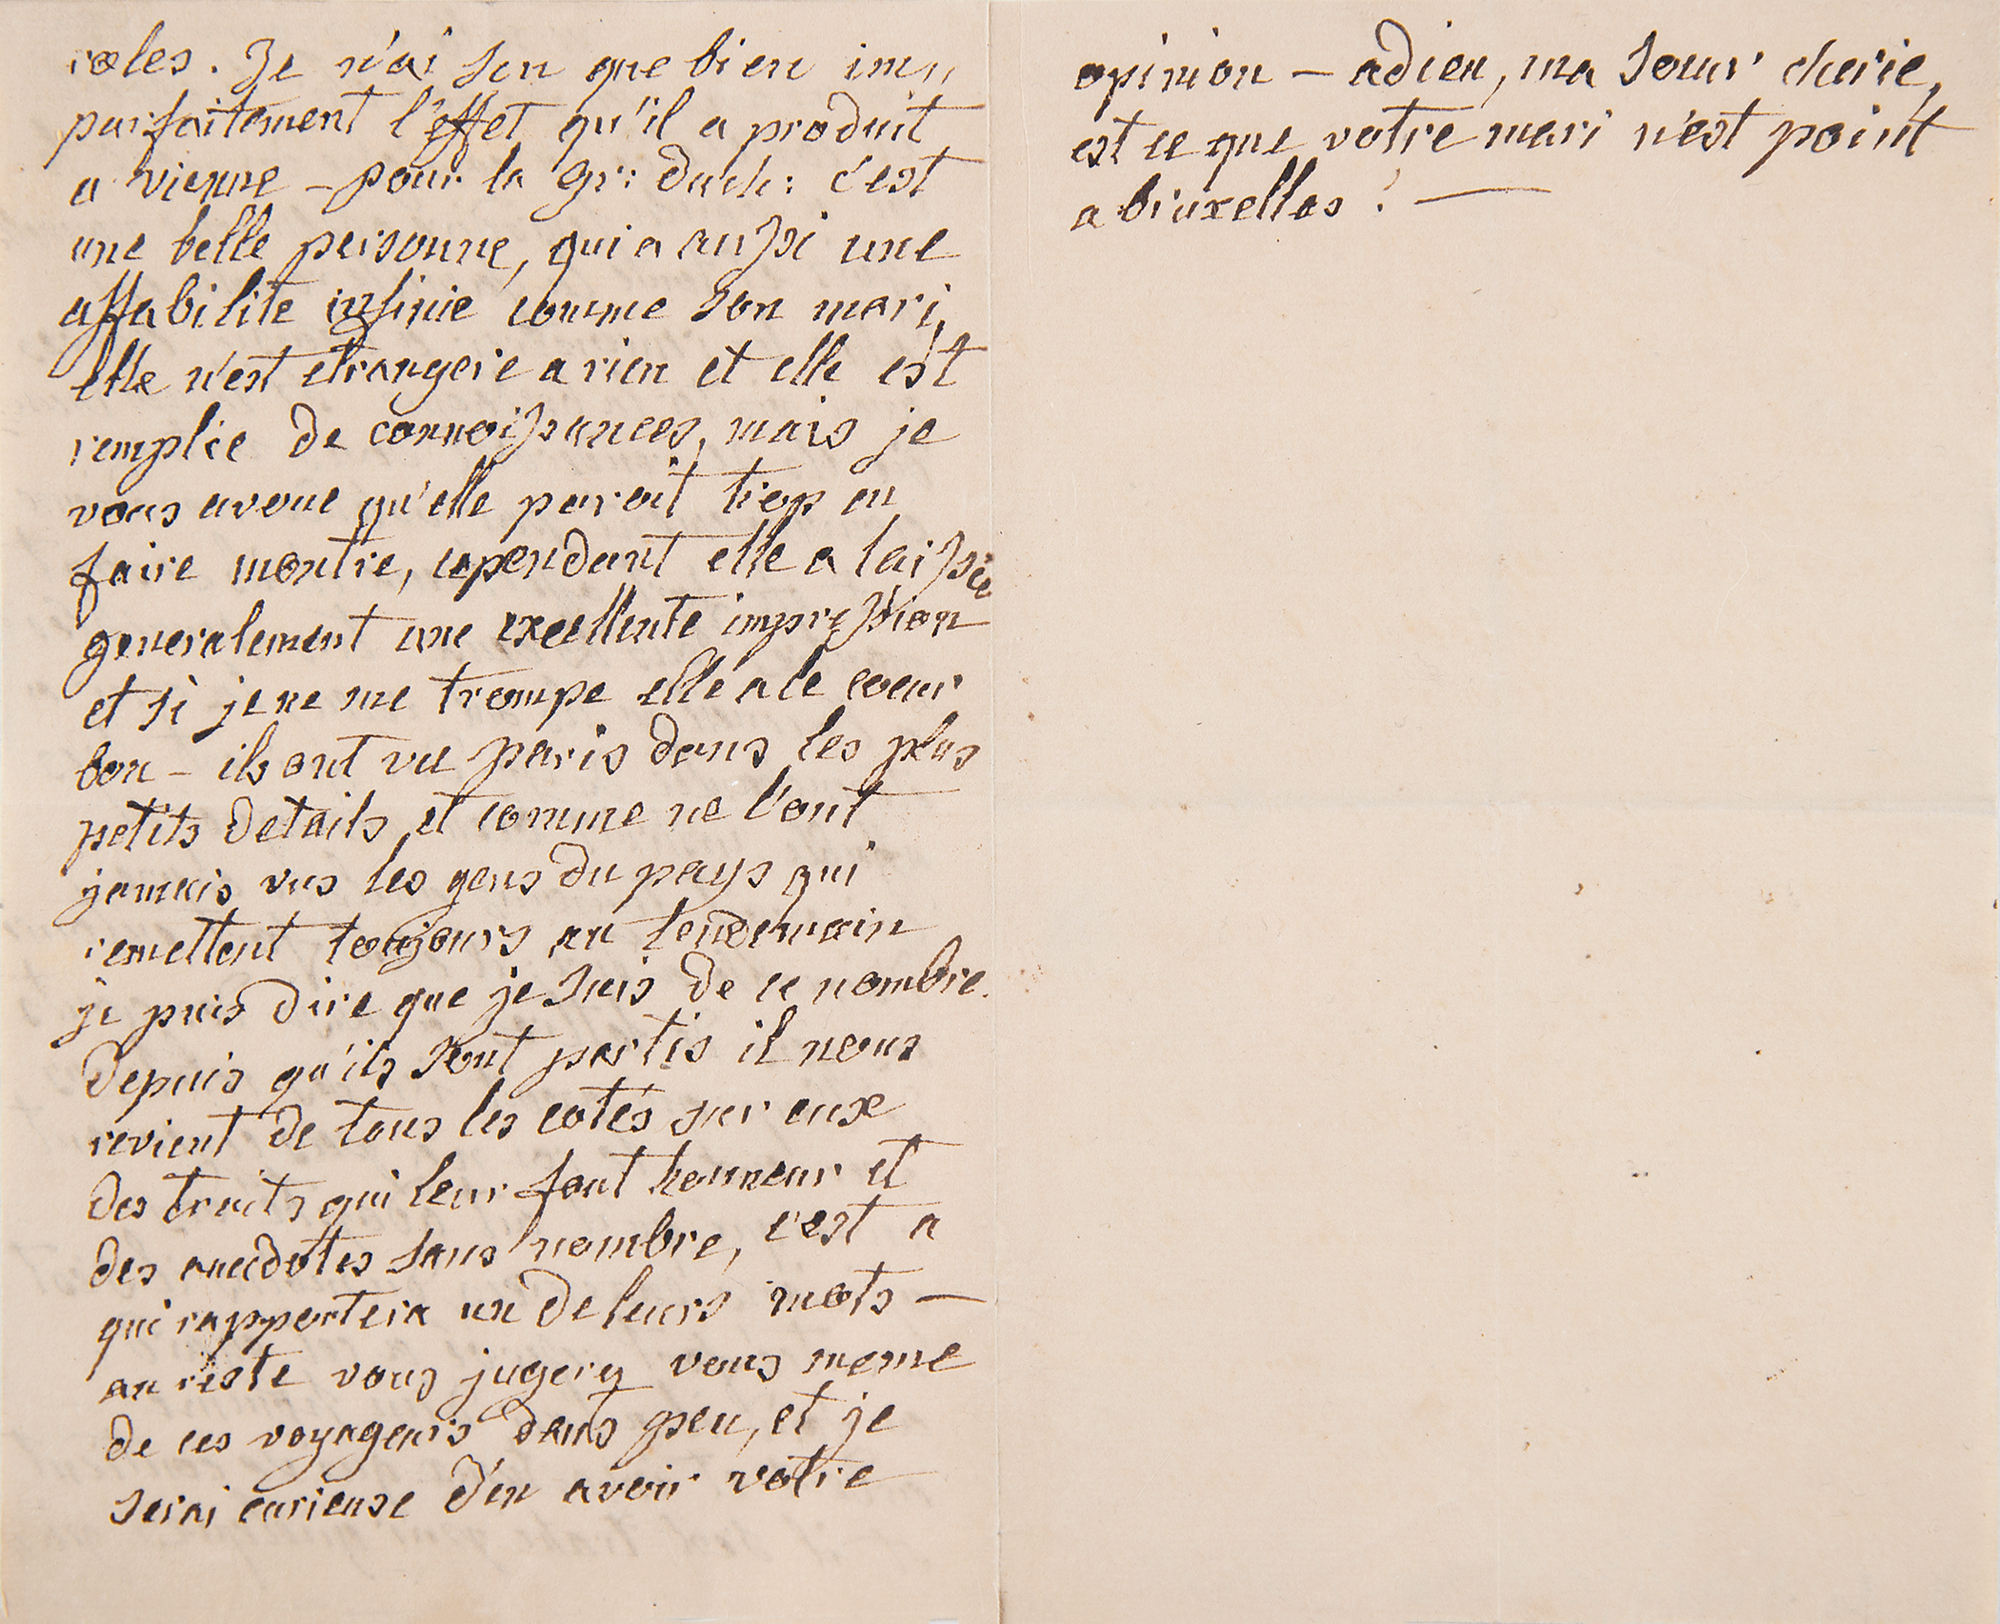 roles. Je n'ai scu que bien im
parfaitement l'effet qu'il a produit
a vienne – pour la gr: duch: c'est
une belle personne, qui a aussi une
affabilite infinie comme son mari,
elle n'est etrangere a rien et elle est
remplie de connoissances, mais je
vous avoue qu'elle paroit trop en
faire montre, cependant elle a laissée
generalement une excellente impression
et si je ne me trompe elle a le coeur
bon – ils ont vu paris dans les plus
petits details et comme ne l'ont
jamais vus les gens du pays qui
remettent toujours au lendemain
je puis dire que je suis de ce nombre.
depuis qu'ils sont partis il nous
revient de tous les cotés sur eux
des traits qui leur font honneur et
des anecdotes sans nombre, c'est a
qui rapportera un de leurs mots —
au reste vous jugerez vous meme
de ces voyageurs dans peu, et je
serai curieuse d'en avoir votre
opinion – adieu, ma soeur cherie,
est ce que votre mari n'est point
a bruxelles? —